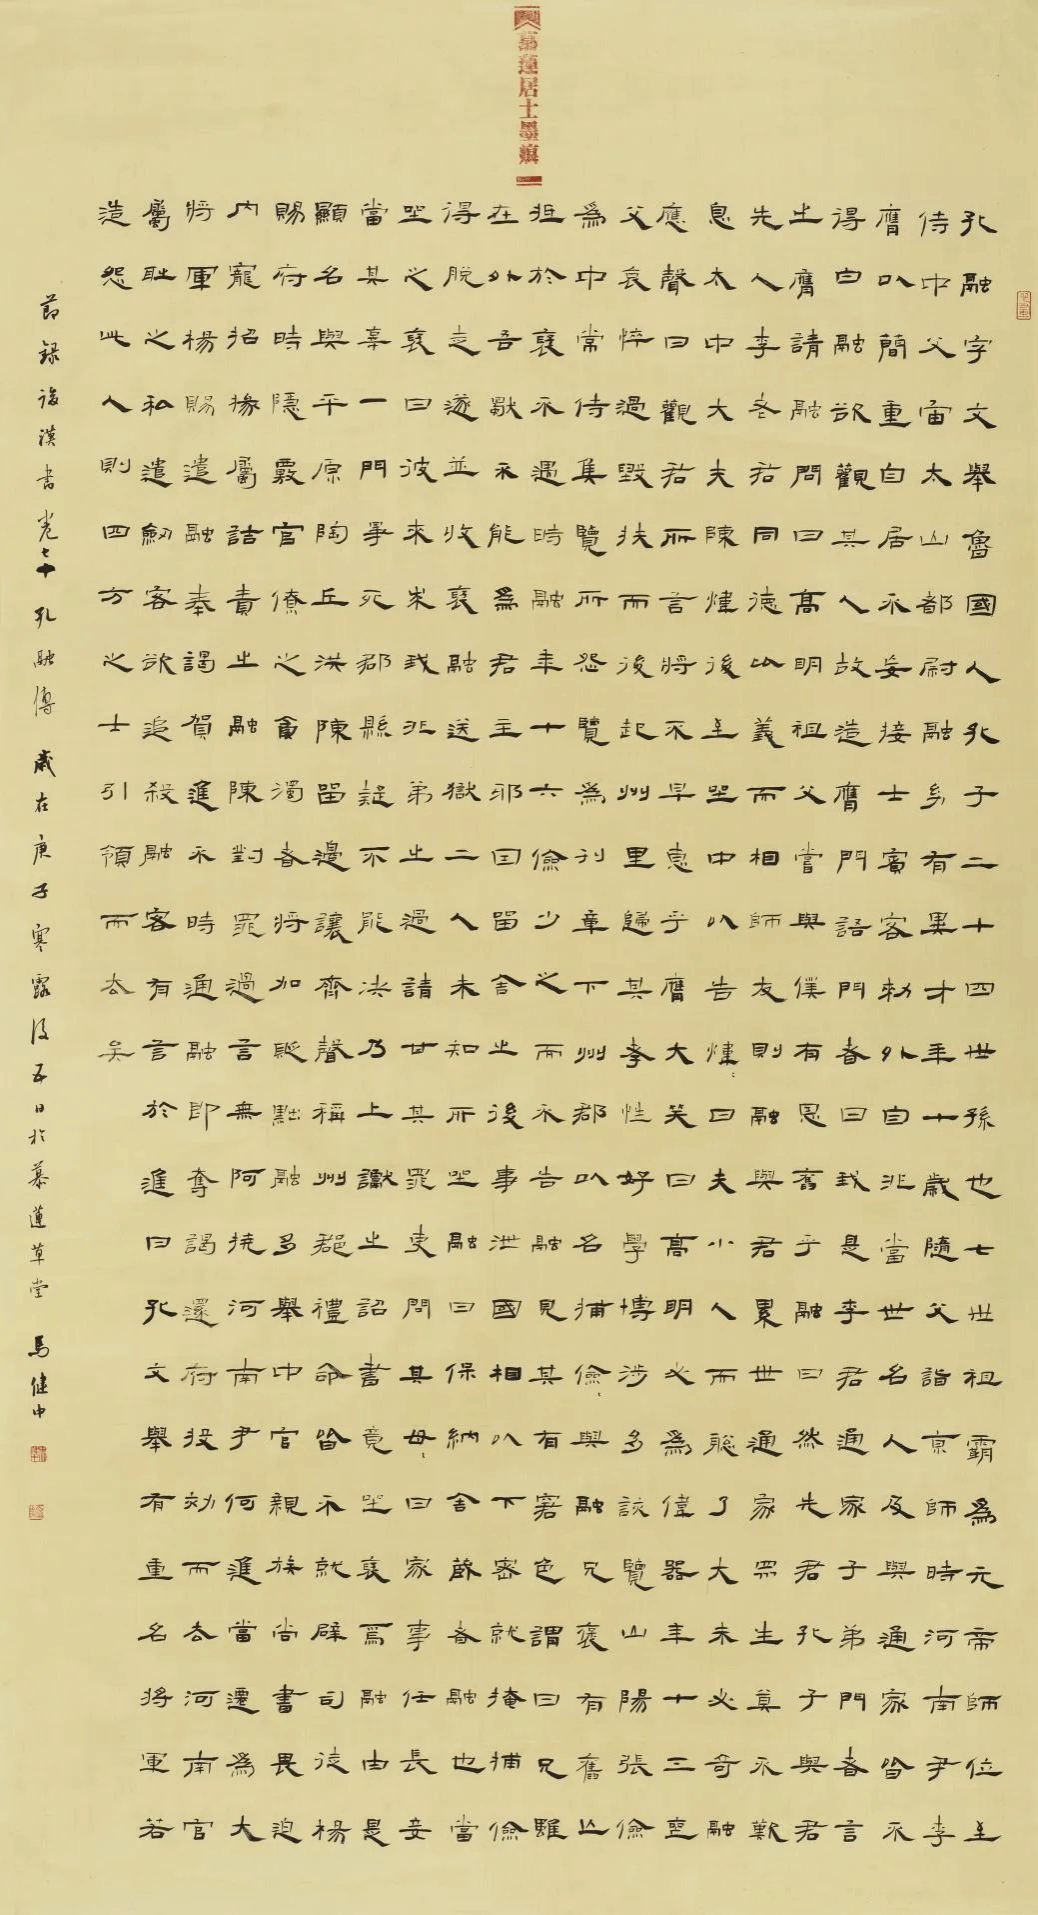 慕蓮居士墨蹟
孔融字文舉魯國人孔子二十四世孫也七世祖霸爲元帝師位至
侍中父宙太山都尉融幼有異才年十歲隨父詣京師時河南尹李
膺以簡重自居不妄接士賓客勑外自非當世名人及與通家皆不
得白融欲觀其人故造膺門語門者曰我是李君通家子弟門者言
之膺請融問曰高明祖父嘗與僕有恩舊乎融曰然先君孔子與君
先人李老君同德比義而相師友則融與君累世通家眾生莫不歎
息太中大夫陳煒後至坐中以告煒〻曰夫小人而聰了大未必奇融
應聲曰觀君所言將不早惠乎膺大笑曰高明必爲偉器年十三喪
父哀悴過毀扶而後起州里歸其孝性好學博涉多該覽山陽張儉
爲中常侍侯覽所怨覽爲刊章下州郡以名捕儉〻與融兄褒有舊亾
抵於褒不遇時融年十六儉少之而不告融見其有窘色謂曰兄雖
在外吾獨不能爲君主邪因留舍之後事泄國相以下密就掩捕儉
得脫走遂並收褒融送獄二人未知所坐融曰保納舍藏者融也當
坐之褒曰彼來求我非弟之過請甘其罪吏問其母〻曰家事任長妾
當其辜一門爭死郡縣疑不能決乃上讞之詔書竟坐褒焉融由是
顯名與平原陶丘洪陳留邊讓齊聲稱州郡禮命皆不就辟司徒楊
賜府時隱覈官僚之貪濁者將加貶黜融多舉中官親族尚書畏迫
內寵招掾屬詰責之融陳對罪過言無阿撓河南尹何進當遷爲大
將軍楊賜遣融奉謁賀進不時通融即奪謁還府投劾而去河南官
屬恥之私遣劍客欲追殺融客有言於進曰孔文舉有重名將軍若
造怨此人則四方之士引領而去矣
節錄後漢書卷七十孔融傳 歲在庚子寒露後五日於慕蓮草堂 馬健中